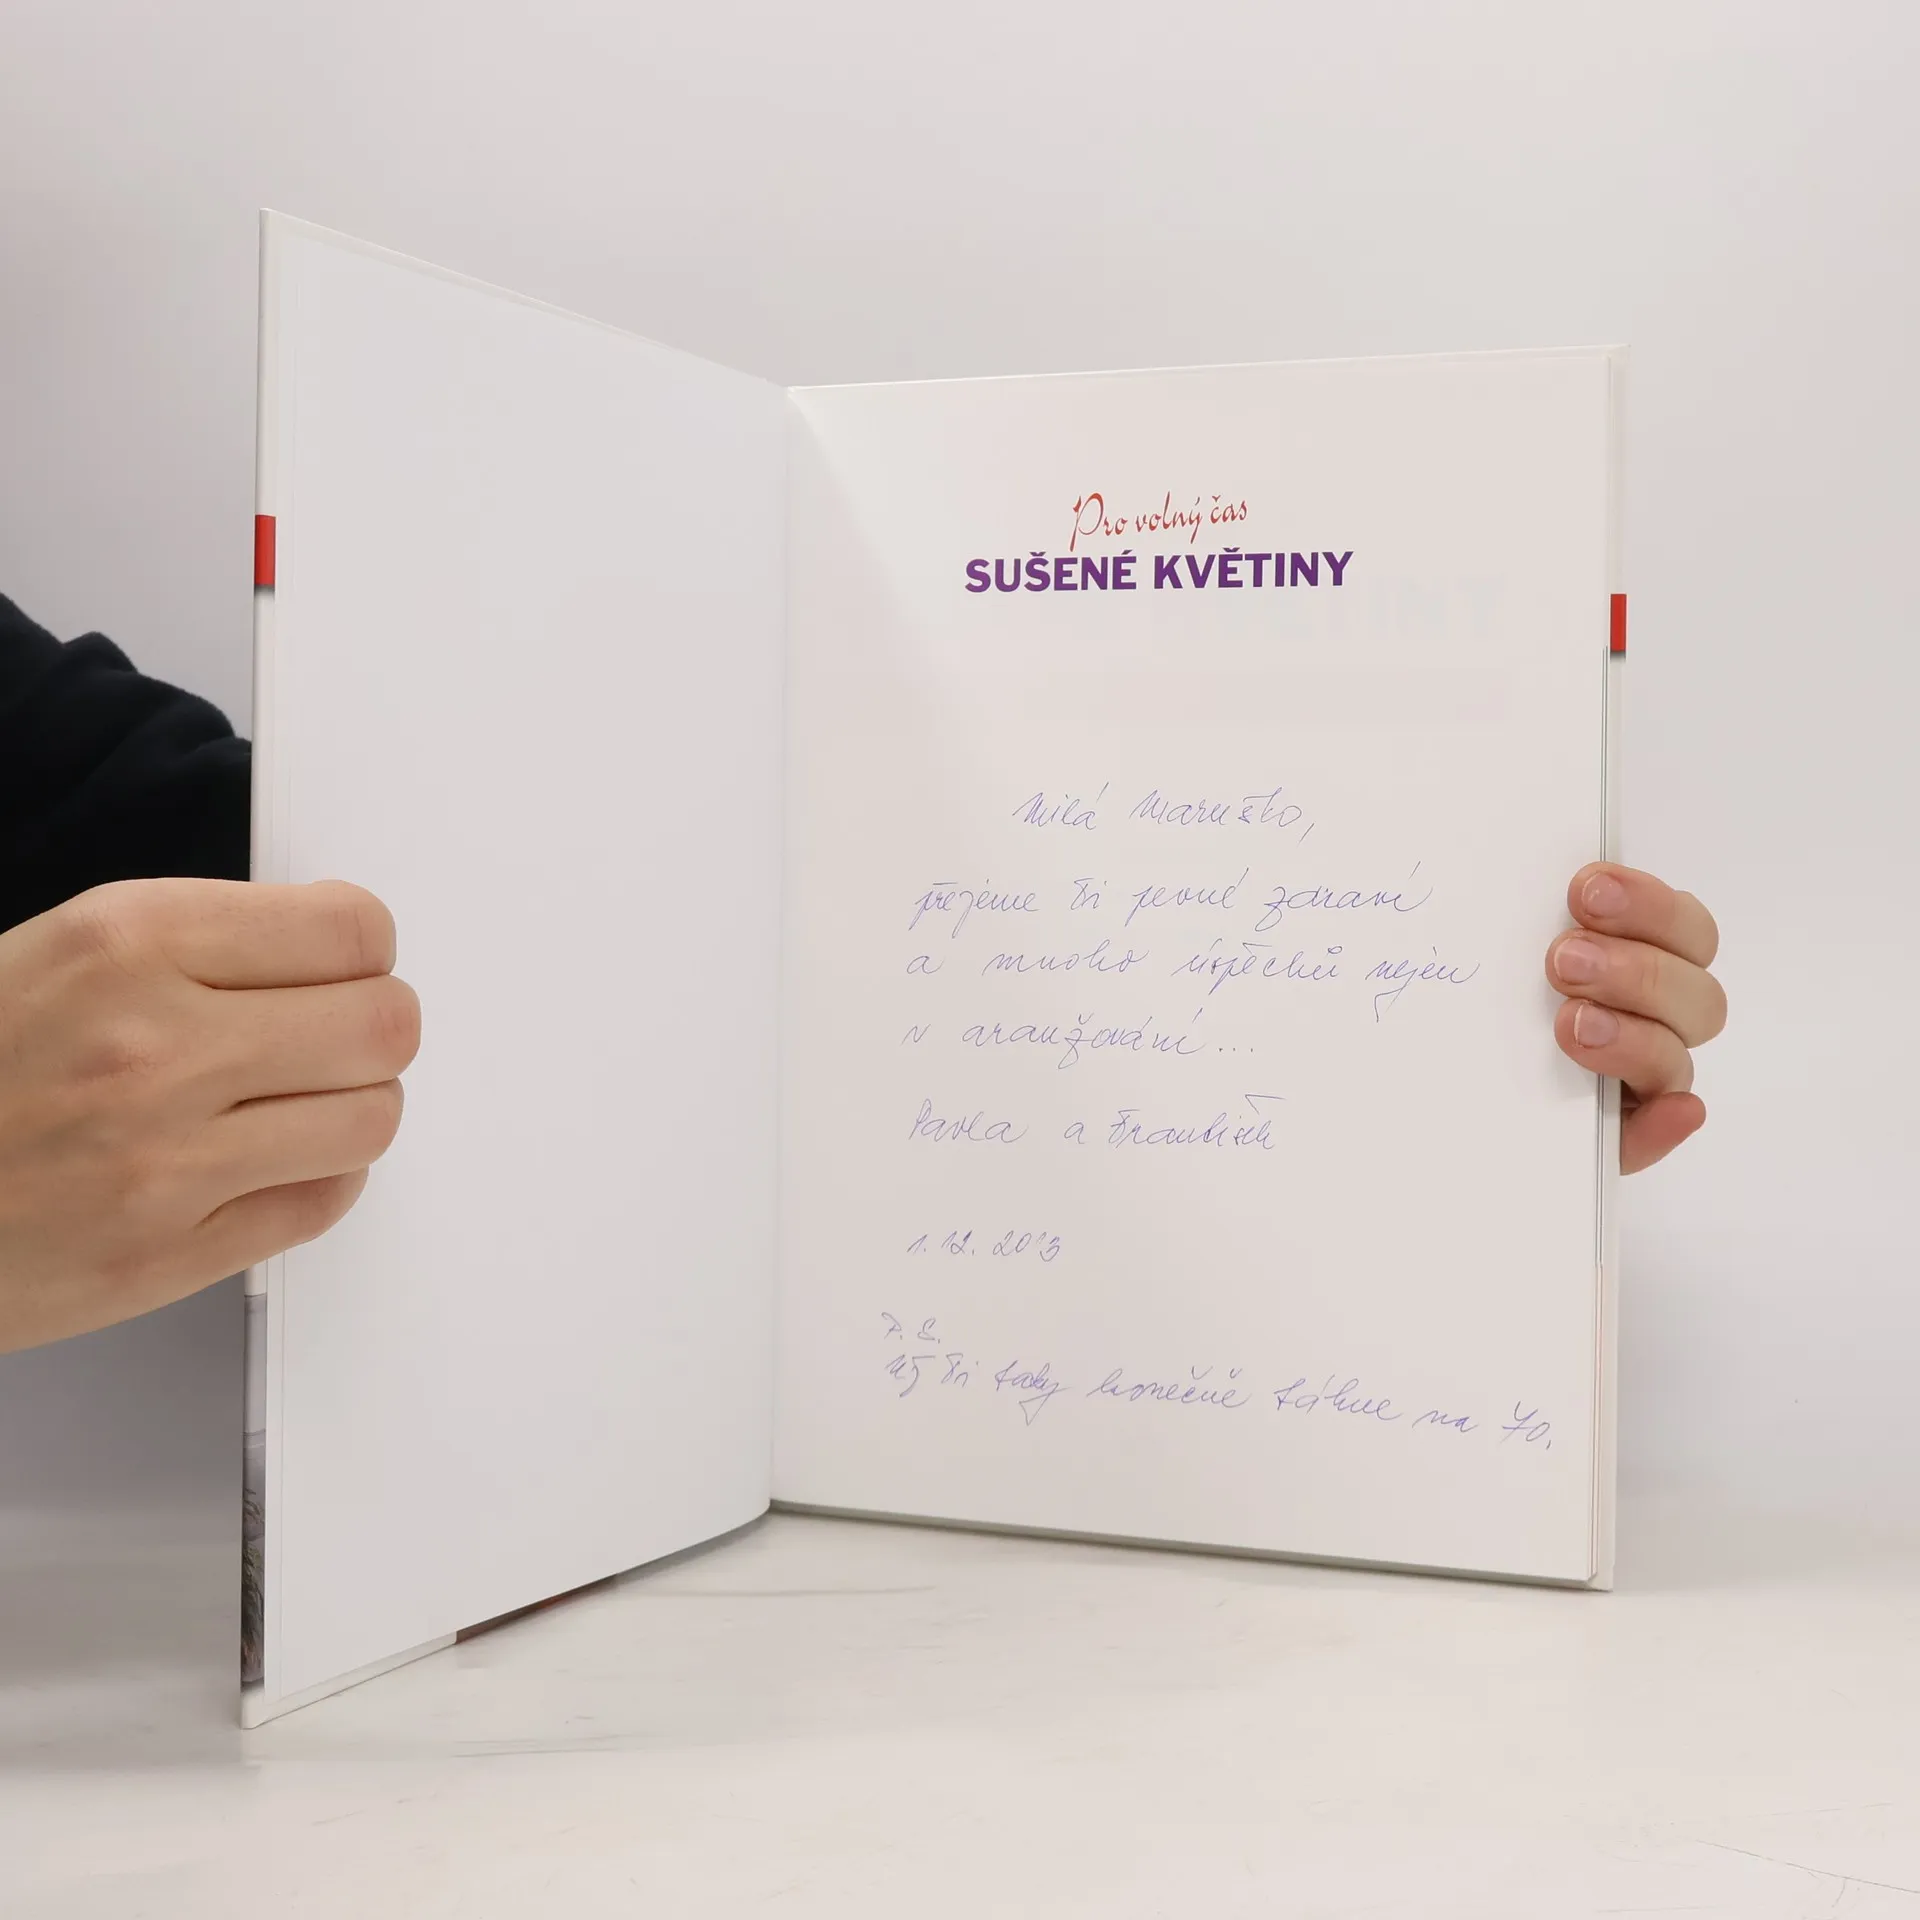 Pro volný čas
SUŠENÉ KVĚTINY
Milá Maruško,
přejeme Ti pevné zdraví
a mnoho úspěchů nejen
v aranžování...
Pavla a František
1. 12. 2013
P. S.
Už Ti taky konečně táhne na 70.